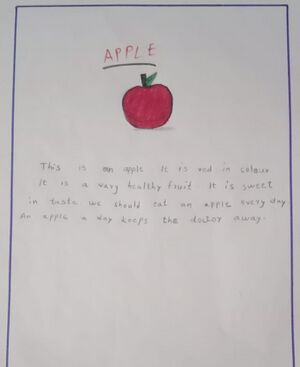 APPLE
This is an apple It is red in colour
It is a vary healthy fruit It is sweet
in taste we should eat an apple every day
An apple a day keeps the doctor away.